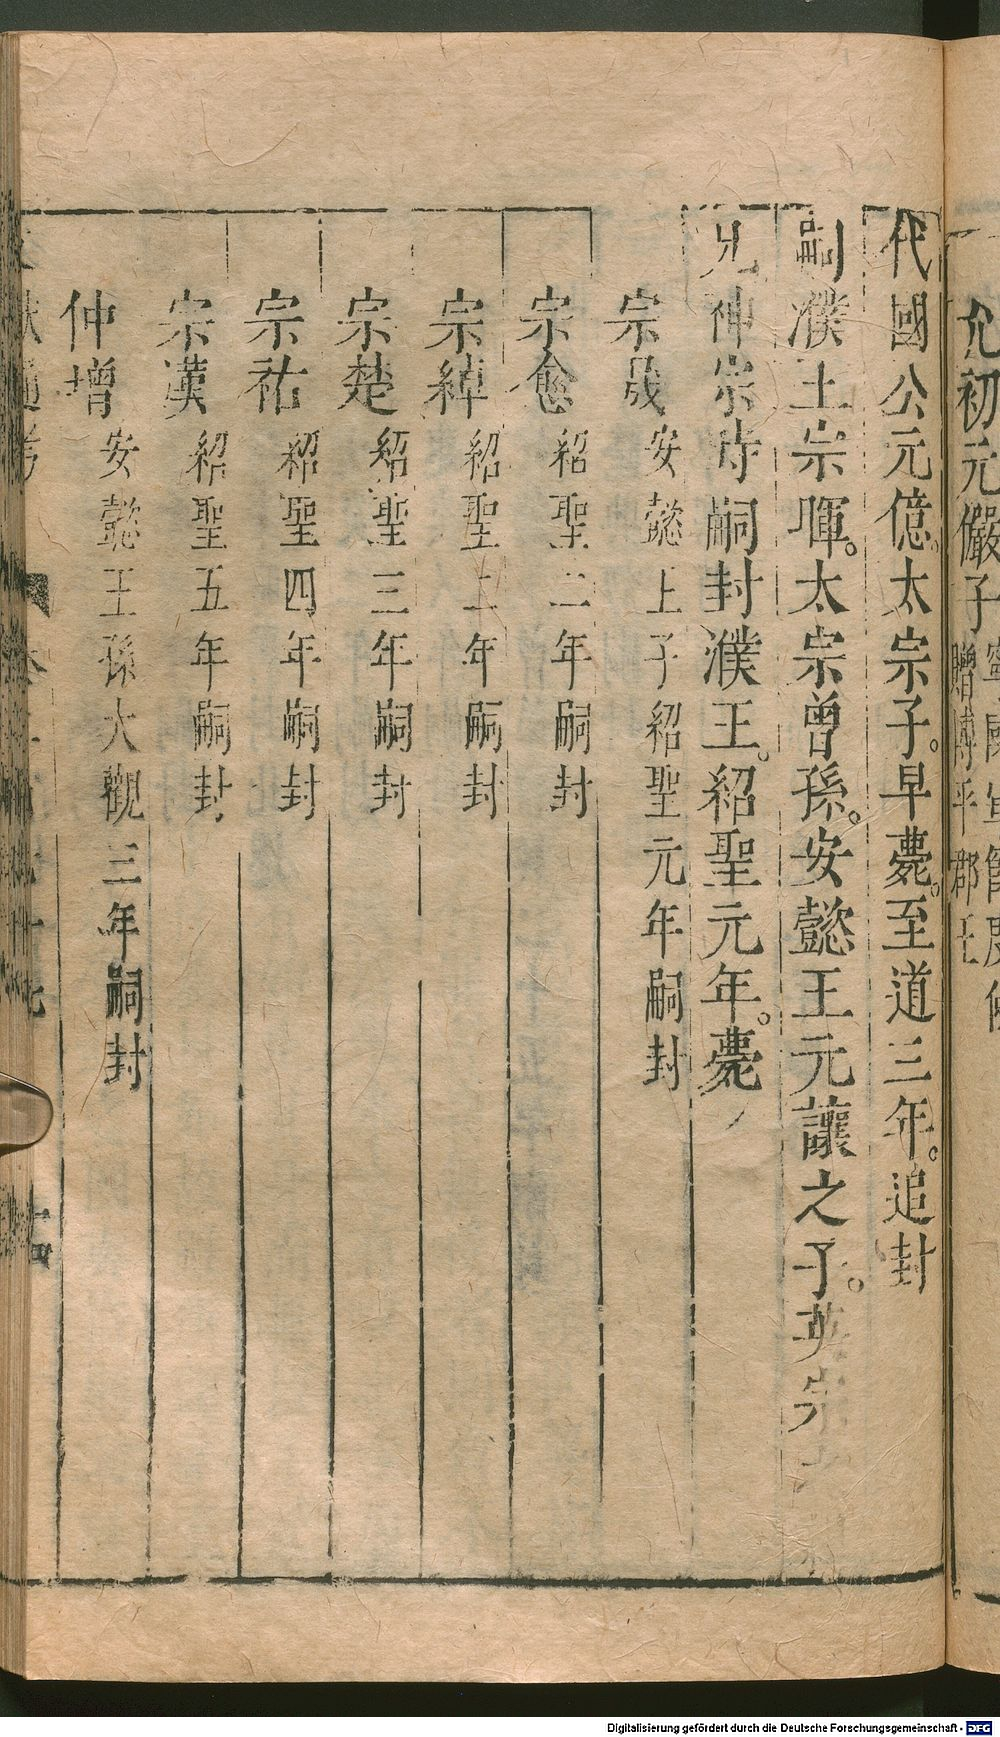 允初元儼子
寧國軍節度使
贈博平郡王
代國公元億。太宗子。早薨。至道三年。追封
嗣濮王宗暉。太宗曾孫。安懿王元讓之子。英宗
兄神宗時嗣封濮王。紹聖元年。薨
宗晟 安懿王子紹聖元年嗣封
宗愈 紹聖二年嗣封
宗綽 紹聖二年嗣封
宗楚 紹聖三年嗣封
宗祐 紹聖四年嗣封
宗漢 紹聖五年嗣封
仲增 安懿王孫大觀三年嗣封
Digitalisierung gefördert durch die Deutsche Forschungsgemeinschaft - DFG